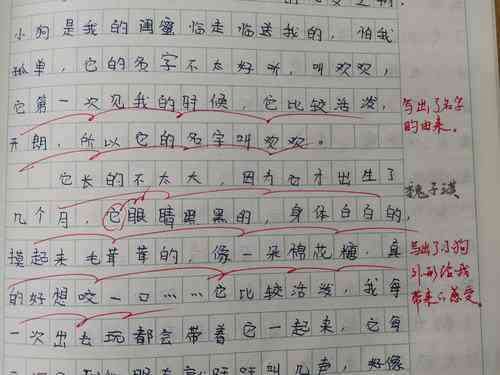 小狗是我的闺蜜临走临送我的，怕我
孤单，它的名字不太好听，叫欢欢，
它第一次见我的时候，它比较活泼，
开朗，所以它的名字叫欢欢。
写出了名字
的由来。
它长的不太大，因为它才出生了
几个月，它眼睛黑黑的，身体白白的，
摸起来毛茸茸的，像一朵棉花糖，真
的好想咬一口……它比较活泼，我每
一次出去玩都会带着它一起来，它每
魏子淇
写出了小狗
外形给我
带来的感受
叫几声，好像